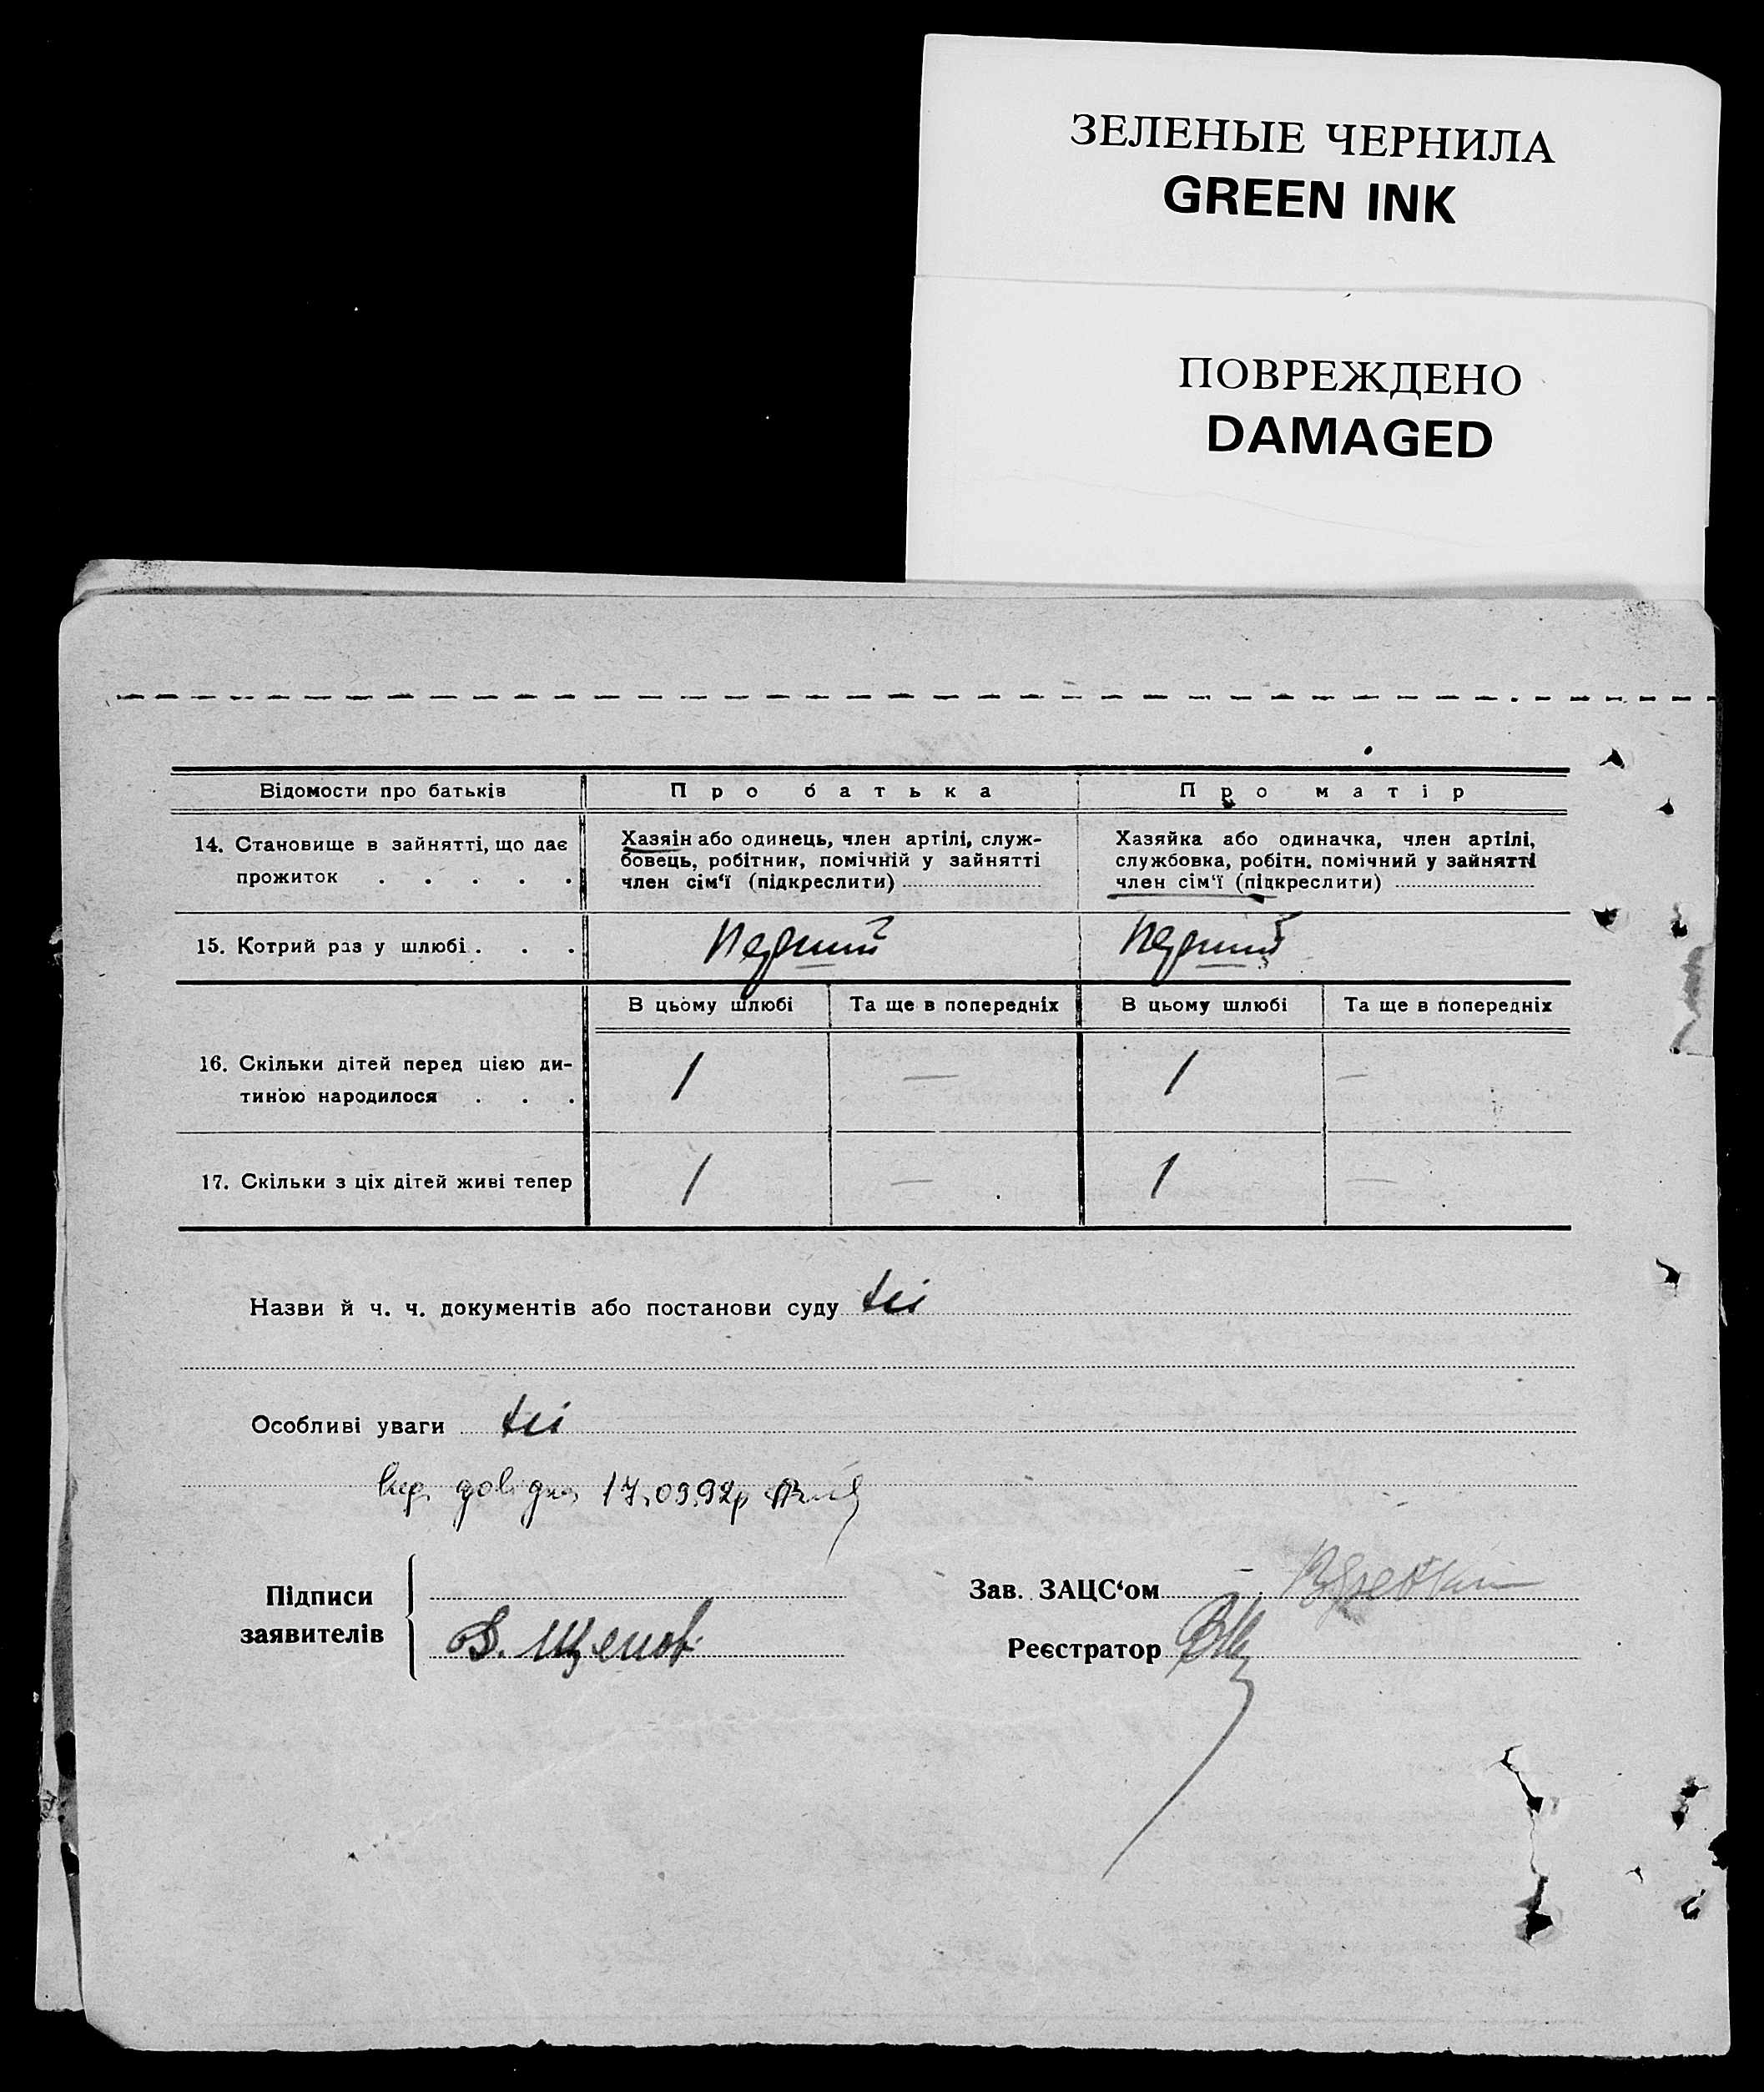 ЗЕЛЕНЫЕ ЧЕРНИЛА
GREEN INK
ПОВРЕЖДЕНО
DAMAGED
Відомости про батьків Про батька Про матір
14. Становище в зайнятті, що дає прожиток . . . . .
Хазяїн або одинець, член артілі, служ-
бовець, робітник, помічній у зайнятті
член сім'ї (підкреслити)
Хазяйка або одиначка, член артілі,
службовка, робітн. помічний у зайнятті
член сім'ї (підкреслити)
15. Котрий раз у шлюбі . . . Перший Перший
В цьому шлюбі Та ще в попередніх В цьому шлюбі Та ще в попередніх
16. Скільки дітей перед цією ди-
тиною народилося . . . 1 — 1 —
17. Скільки з ціх дітей живі тепер 1 — 1 —
Назви й ч. ч. документів або постанови суду
Особливі уваги
17.09.92р
Підписи
заявителів
Зав. ЗАЦС'ом
Реєстратор